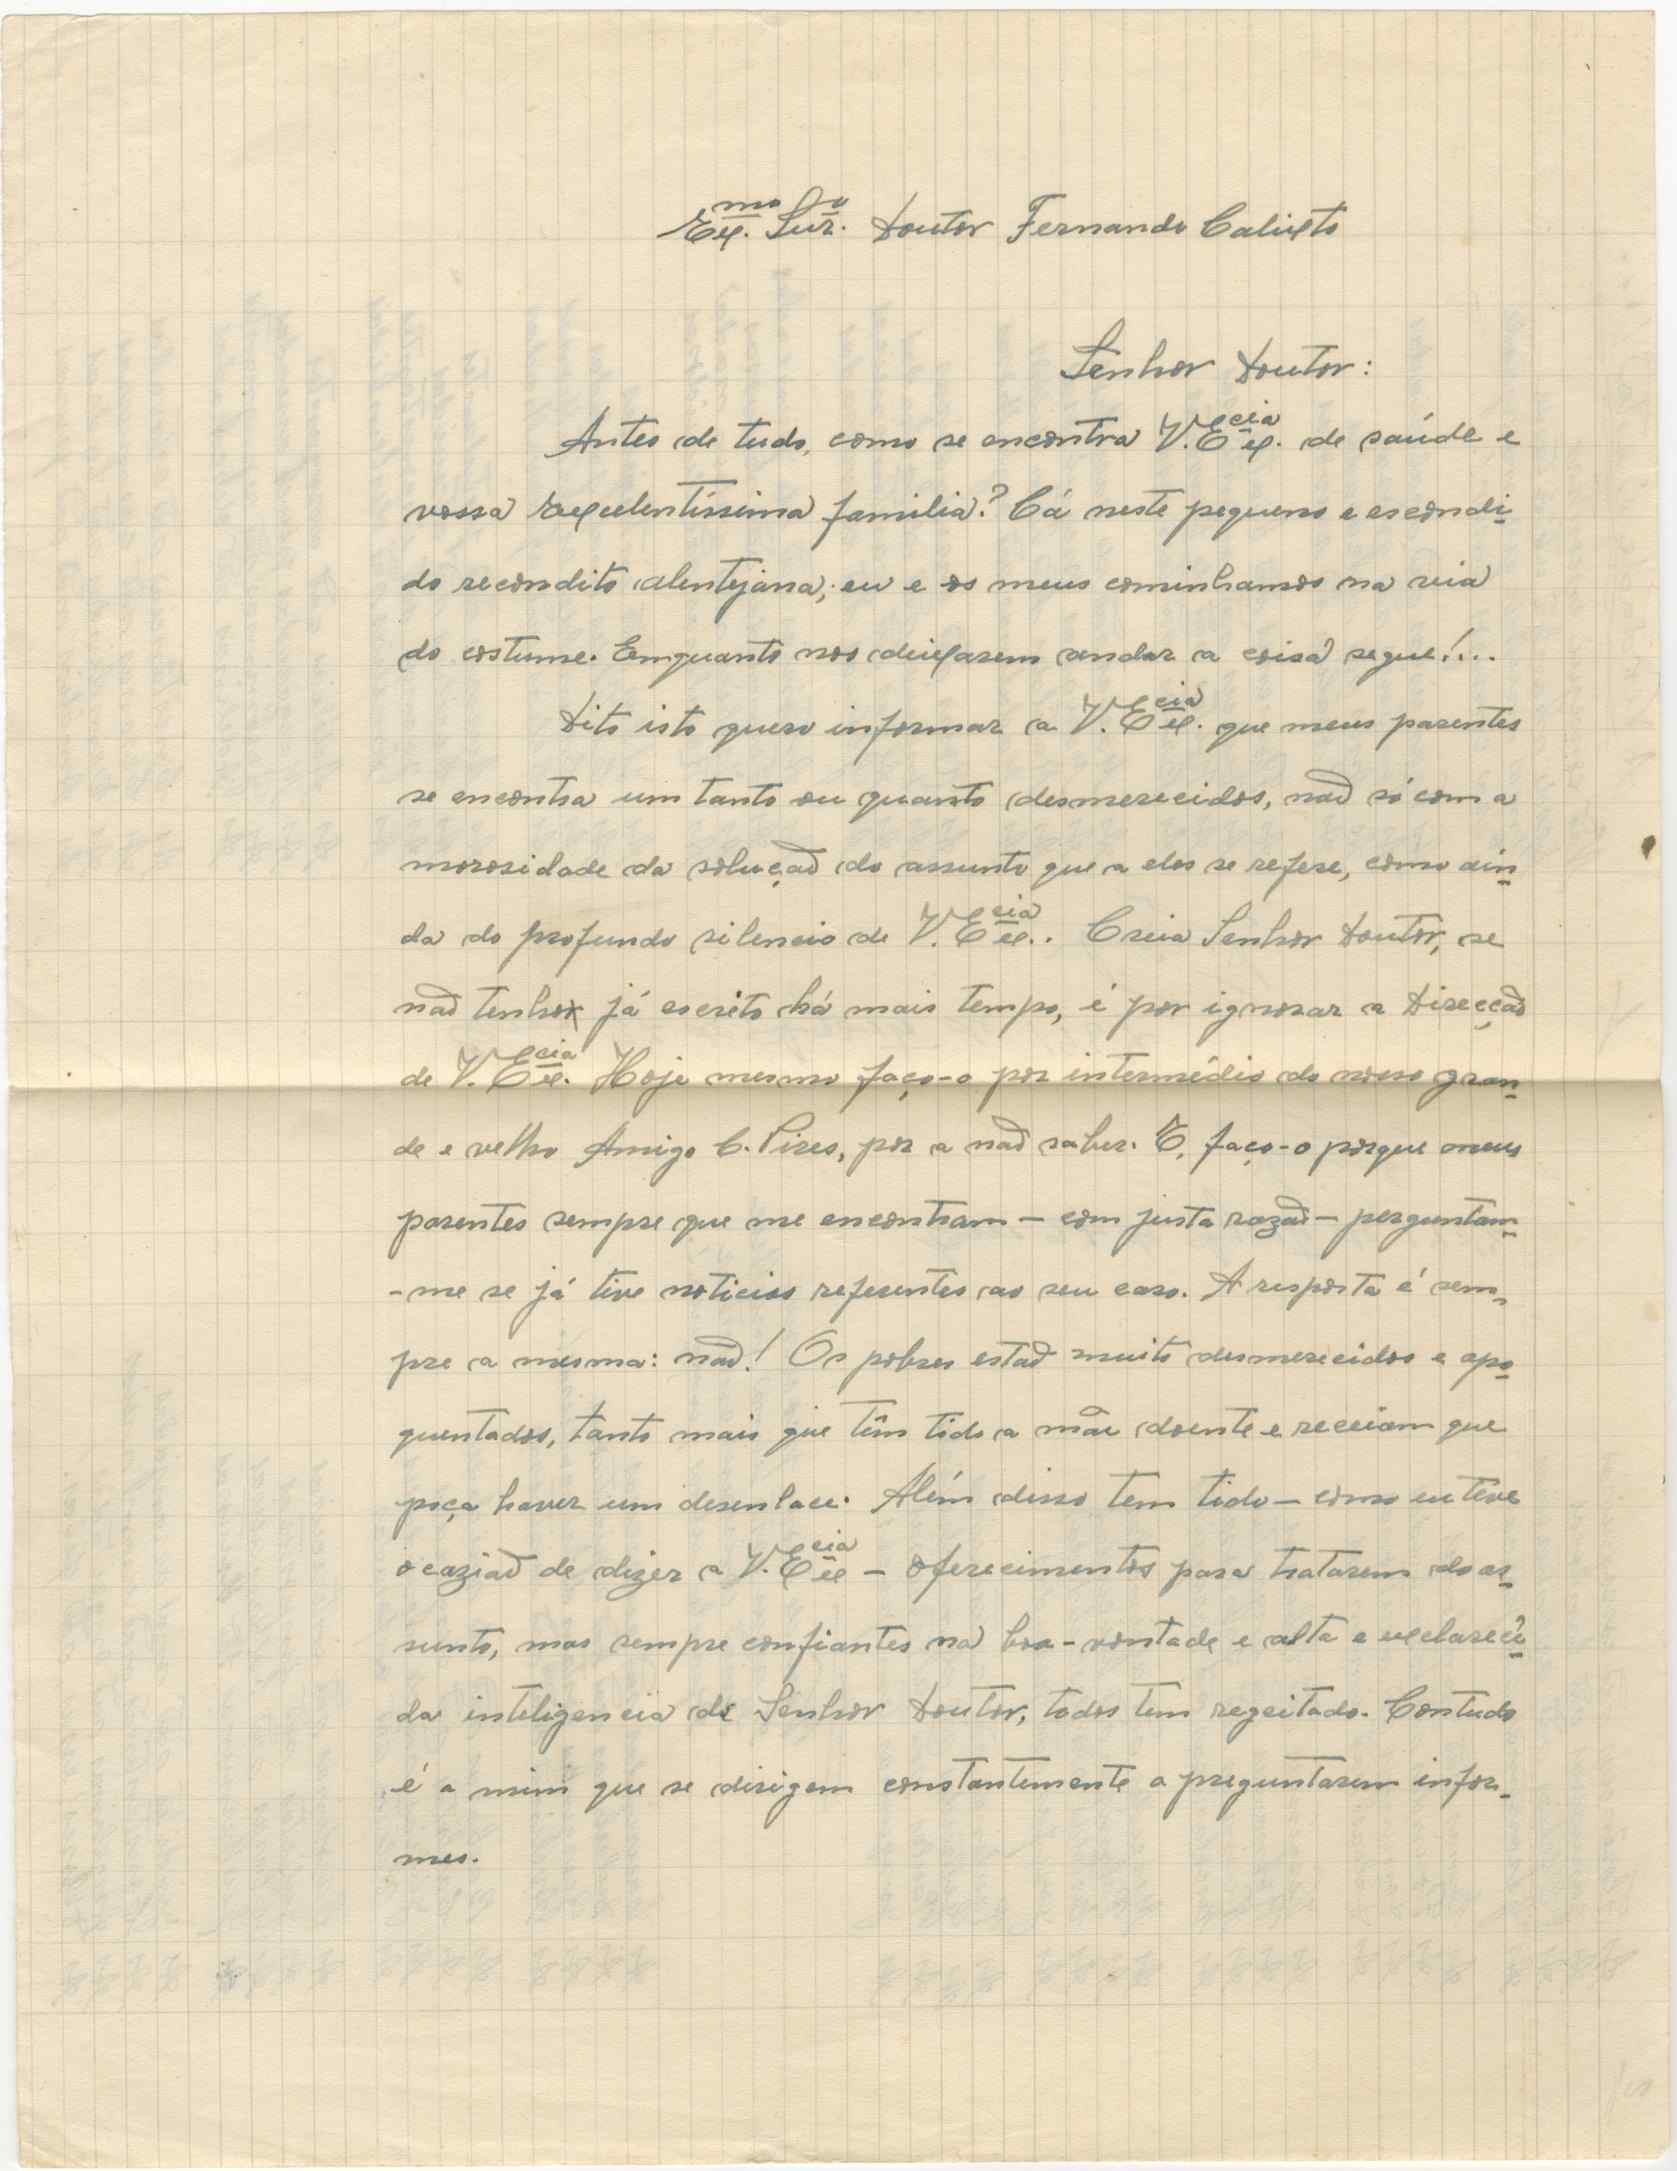 Ex.mo Snr.o Doutor Fernando Calixto
Senhor Doutor:
Antes de tudo, como se encontra V. Ex.cia de saúde e
vossa Excelentíssima familia? Cá neste pequeno e escondi-
do recondito alentejana; eu e os meus cominhamos na via
do costume. Emquanto nos deixarem andar a coisa segue!...
Dito isto quero informar a V. Ex.cia que meus parentes
se encontra um tanto ou quanto desmerecidos, não só com a
morosidade da solução do assunto que a eles se refere, como ain-
da do profundo silencio de V. Ex.cia. Creia Senhor Doutor, se
não tenho já escrito há mais tempo, é por ignorar a Direcção
de V. Ex.cia Hoje mesmo faço-o por intermédio do nosso gran-
de e velho Amigo C. Pires, por a não saber. E, faço-o porque meus
parentes sempre que me encontram - com justa razão - perguntam-
-me se já tive noticias referentes ao seu caso. A resposta é sem-
pre a mesma: não! Os pobres estão muito desmerecidos e apo-
quentados, tanto mais que têm tido a mãe doente e receiam que
poça haver um desenlace. Além disso tem tido - como eu tive
ocazião de dizer a V. Ex.cia - oferecimentos para tratarem do as-
sunto, mas sempre confiantes na boa-vontade e alta e exclareci-
da inteligencia do Senhor Doutor, todos tem regeitado. Contudo
é a mim que se dirigem constantemente a preguntarem infor-
mes.